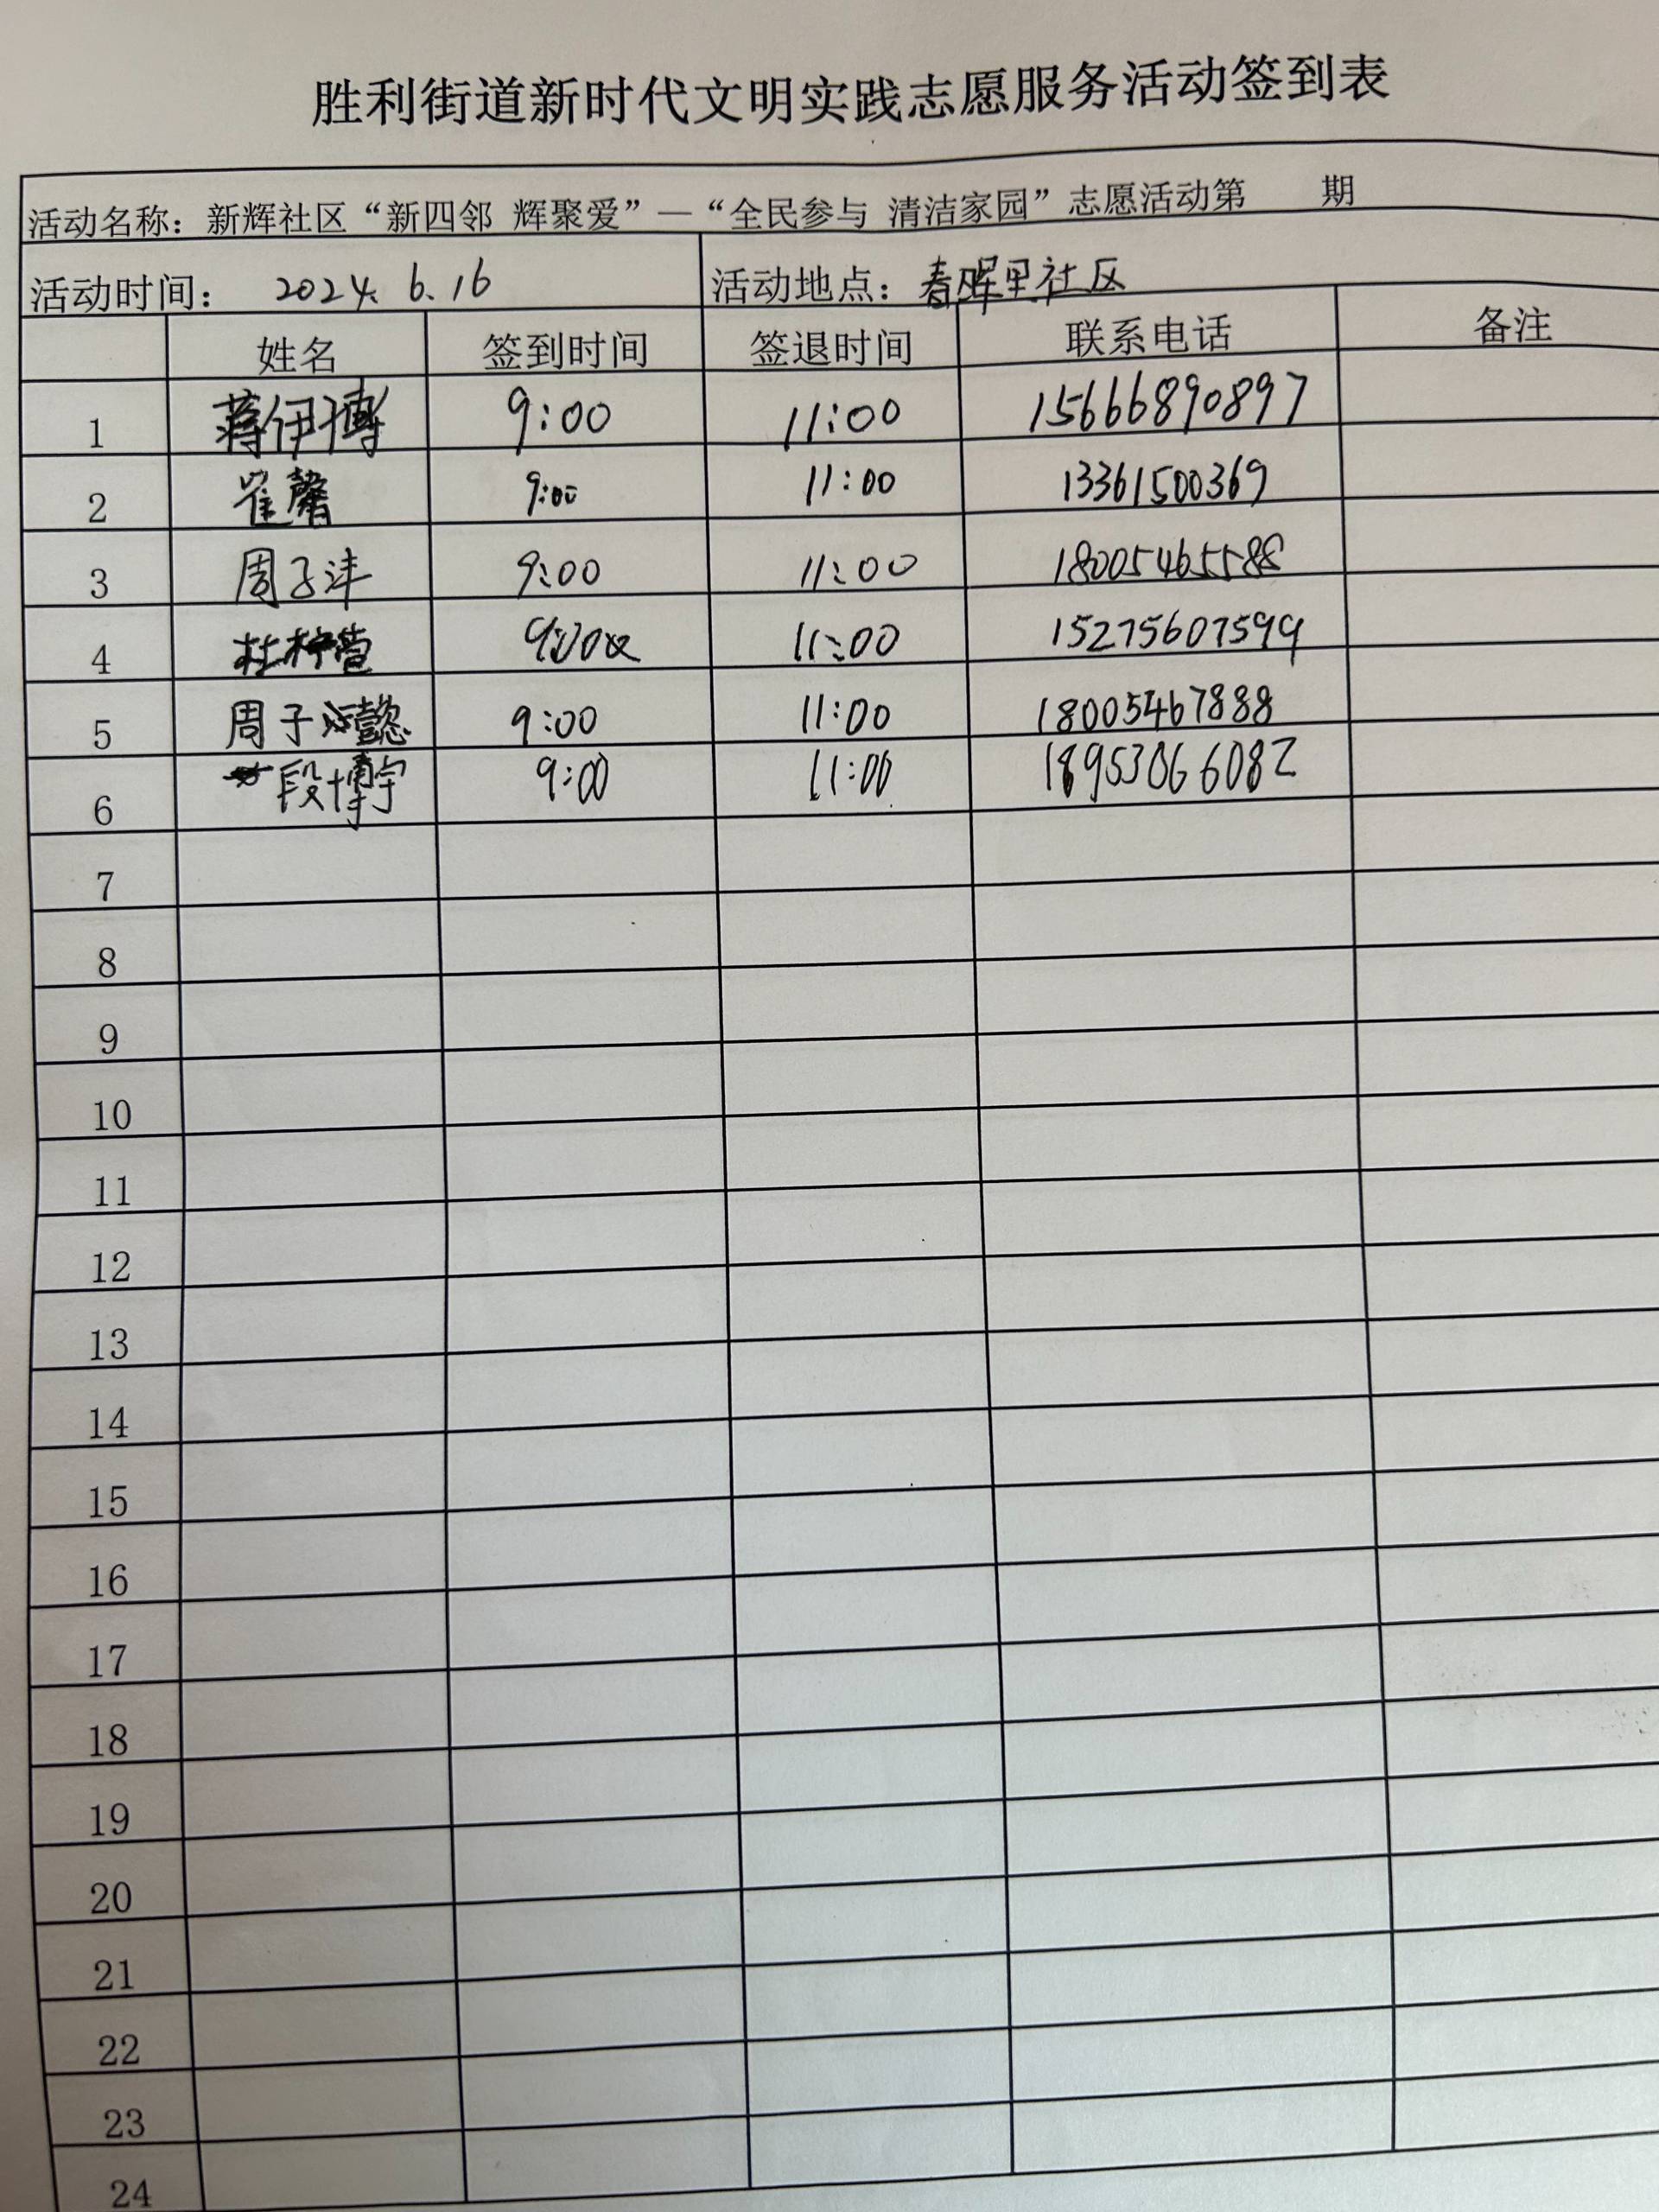 胜利街道新时代文明实践志愿服务活动签到表
活动名称：新辉社区“新四邻 辉聚爱”—“全民参与 清洁家园”志愿活动第 期
活动时间： 2024. 6. 16 活动地点：春晖里社区
姓名 签到时间 签退时间 联系电话 备注
1 蒋伊博 9:00 11:00 15666890897
2 崔馨 9:00 11:00 13361500369
3 周子沣 9:00 11:00 18005465588
4 杜柠萱 11:00 15275607599
5 周子懿 9:00 11:00 18005467888
6 段博宇 9:00 11:00 18953066082
7
8
9
10
11
12
13
14
15
16
17
18
19
20
21
22
23
24